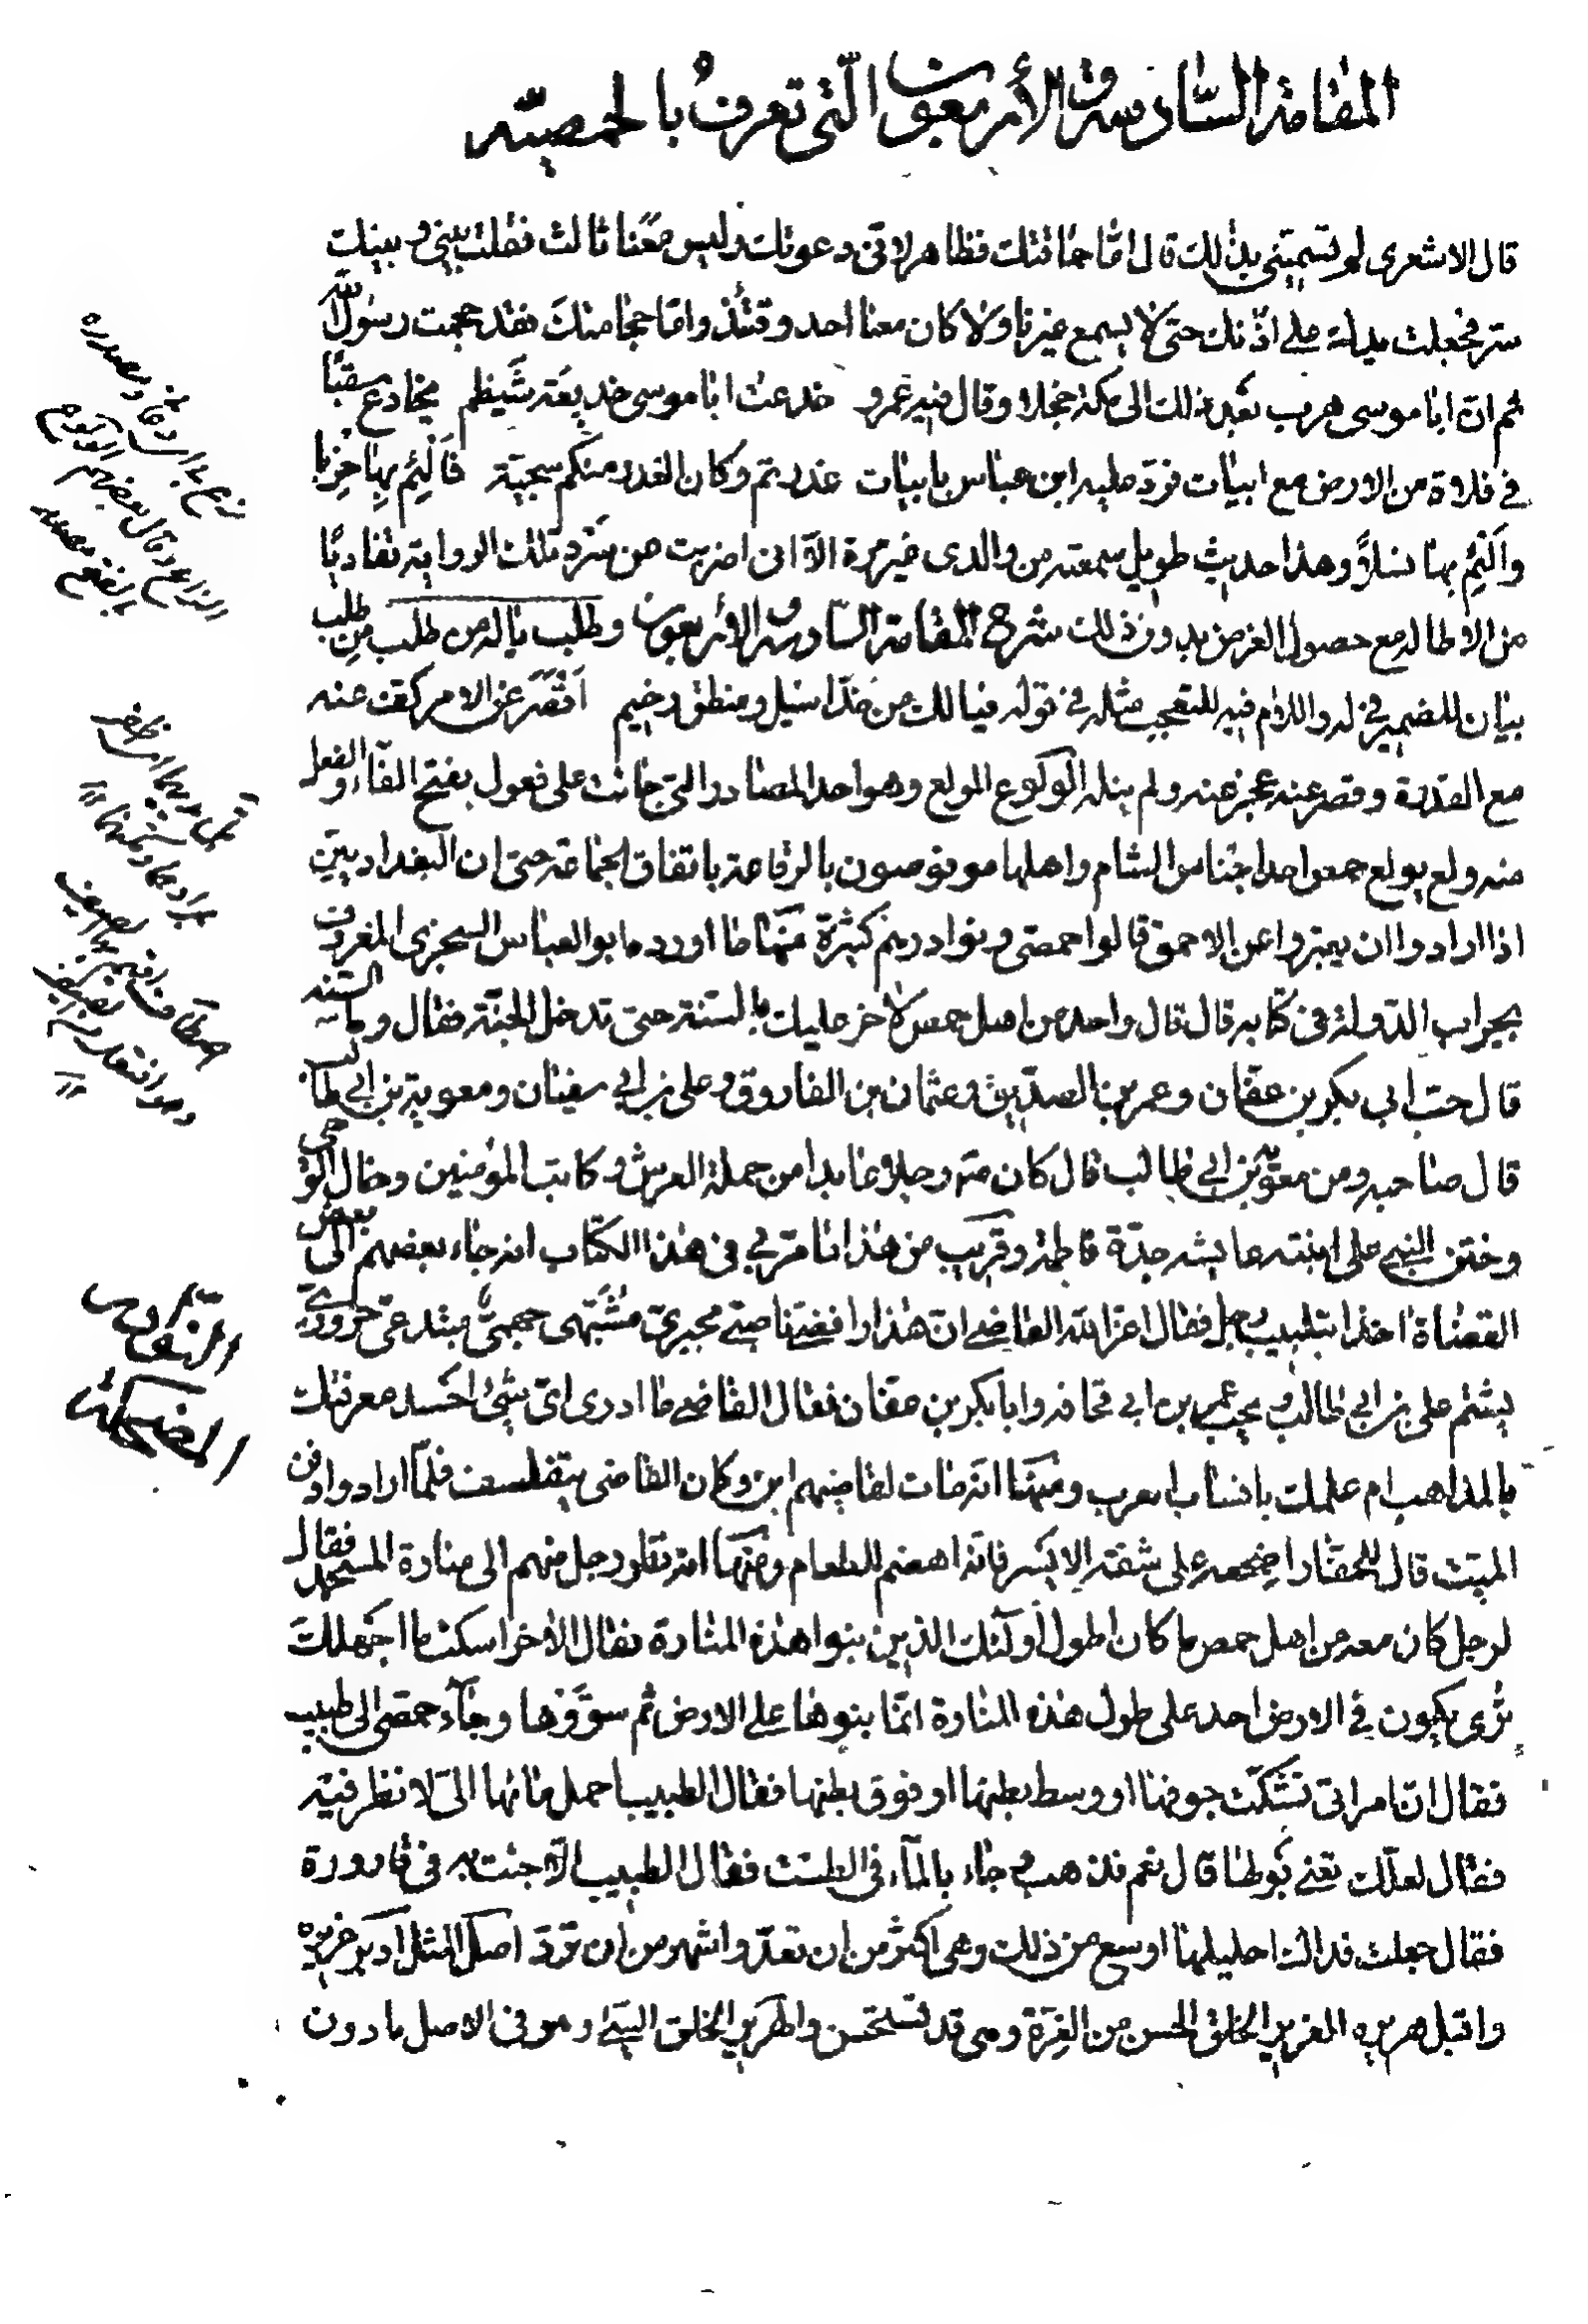 المقامة السادسة والأربعون التي تعرف بالحمصيّة
قال الاشعرى لم تسميتني بذلك قال امّا حماقتك فظاهر لانى دعوتك وليس معنا ثالث فقلت بيني وبينك
سر فجعلت ميلة على اذنك حتى لا يسمع غيرنا ولا كان معنا احد وقتئذ وامّا حجامتك فقد حجمت رسول الله
ثم انّ ابا موسى هرب بعد ذلك الى مكة خجلا وقال فيه عمرو خدعت ابا موسى خديعة شيظم يخادع سقبًا
فى فلاة من الارض مع ابيات فردّ عليه ابن عباس بابيات غدرتم وكان الغدر منكم سجية فالئم بها حزبا
والئم بها نسلاً وهذا حديث طويل سمعته من والدى غير مرة الّا انى اضربت عن سرد تلك الرواية تفاديًا
من الاطالة مع حصول الغرض بدون ذلك شرح المقامة السادسة والأربعون وطلب ياله من طلب من طلب
بيان للضمير فى له واللام فيه للتعجب مثله فى قوله فيالك من خدّ اسيل ومنطق رخيم اقصر عن الامر كفّ عنه
مع القدرة وقصر عنه عجز عنه ولم ينله الولوع المولع وهو احد المصادر التى جاءت على فعول بفتح الفاء والفعل
منه ولع يولع حمص احد اجناس الشام واهلها موصوفون بالرقاعة باتفاق الجماعة حتى ان البغداديين
اذا ارادوا ان يعبروا عن الاحمق قالوا حمصى ونوادرهم كثيرة منها ما اورده ابو العباس السجزى المعروف
بجراب الدولة فى كتابه قال قال واحد من اهل حمص لاخر عليك بالسنة حتى تدخل الجنة فقال وما السنة
قال حبّ ابى بكر بن عفّان وعمر بن الصدّيق وعثمان بن الفاروق وعلى بن ابى سفيان ومعوية بن ابى طالب
قال صاحبه ومن معوية بن ابى طالب قال كان رجلا عابدا من حملة العرش وكاتب المؤمنين وخال الوحى
وختن النبى على ابنته عايشه جدّة فاطمة وقريب من هذا ما مرّ بى فى هذا الكتاب انه جاء بعضهم الى بعض
القضاة اخذا بتلبيب رجل فقال اعز الله القاضى انّ هذا رافضى ناصبى مجبرى مشبّهى جهمىّ مبتدعىّ حرورىّ
يشتم على بن ابى طالب ويحب عمر بن ابى قحافه وابا بكر بن عفان فقال القاضى ما ادرى اىّ شئ احسد معرفتك
بالمذاهب ام علمك بانساب العرب ومنها انه مات لقاضيهم ابن وكان القاضى يتفلسف فلمّا ارادوا دفن
الميت قال للحفّار اضجعه على شقه الايسر فانه اهضم للطعام ومنها انه تطلع رجل منهم الى منارة المسجد فقال
لرجل كان معه من اهل حمص ما كان اطول اولئك الذين بنوا هذه المنارة فقال الاخر اسكت ما اجهلك
ترى يكون فى الارض احد على طول هذه المنارة انما بنوها على الارض ثم سوّوها وجاء حمصى الى طبيب
فقال انّ امراتى تشتكى جوفها او وسط بطنها او فوق بطنها فقال الطبيب احمل مائها الىّ لانظر فيه
فقال لعلّك تعنى بولها قال نعم فذهب وجاء بالماء فى الطست فقال الطبيب الّا جئت به فى قارورة
فقال جعلت فداك احليلها اوسع من ذلك وهى اكثر من ان تعدّ واشهر من ان تردّ اصل المثل ادبر غريره
واقبل هريره الغرير الخلق الحسن من الغرة وهى قد تستحسن والهرير الخلق السيئ وهو فى الاصل ما دون
النوادر
المضحكة